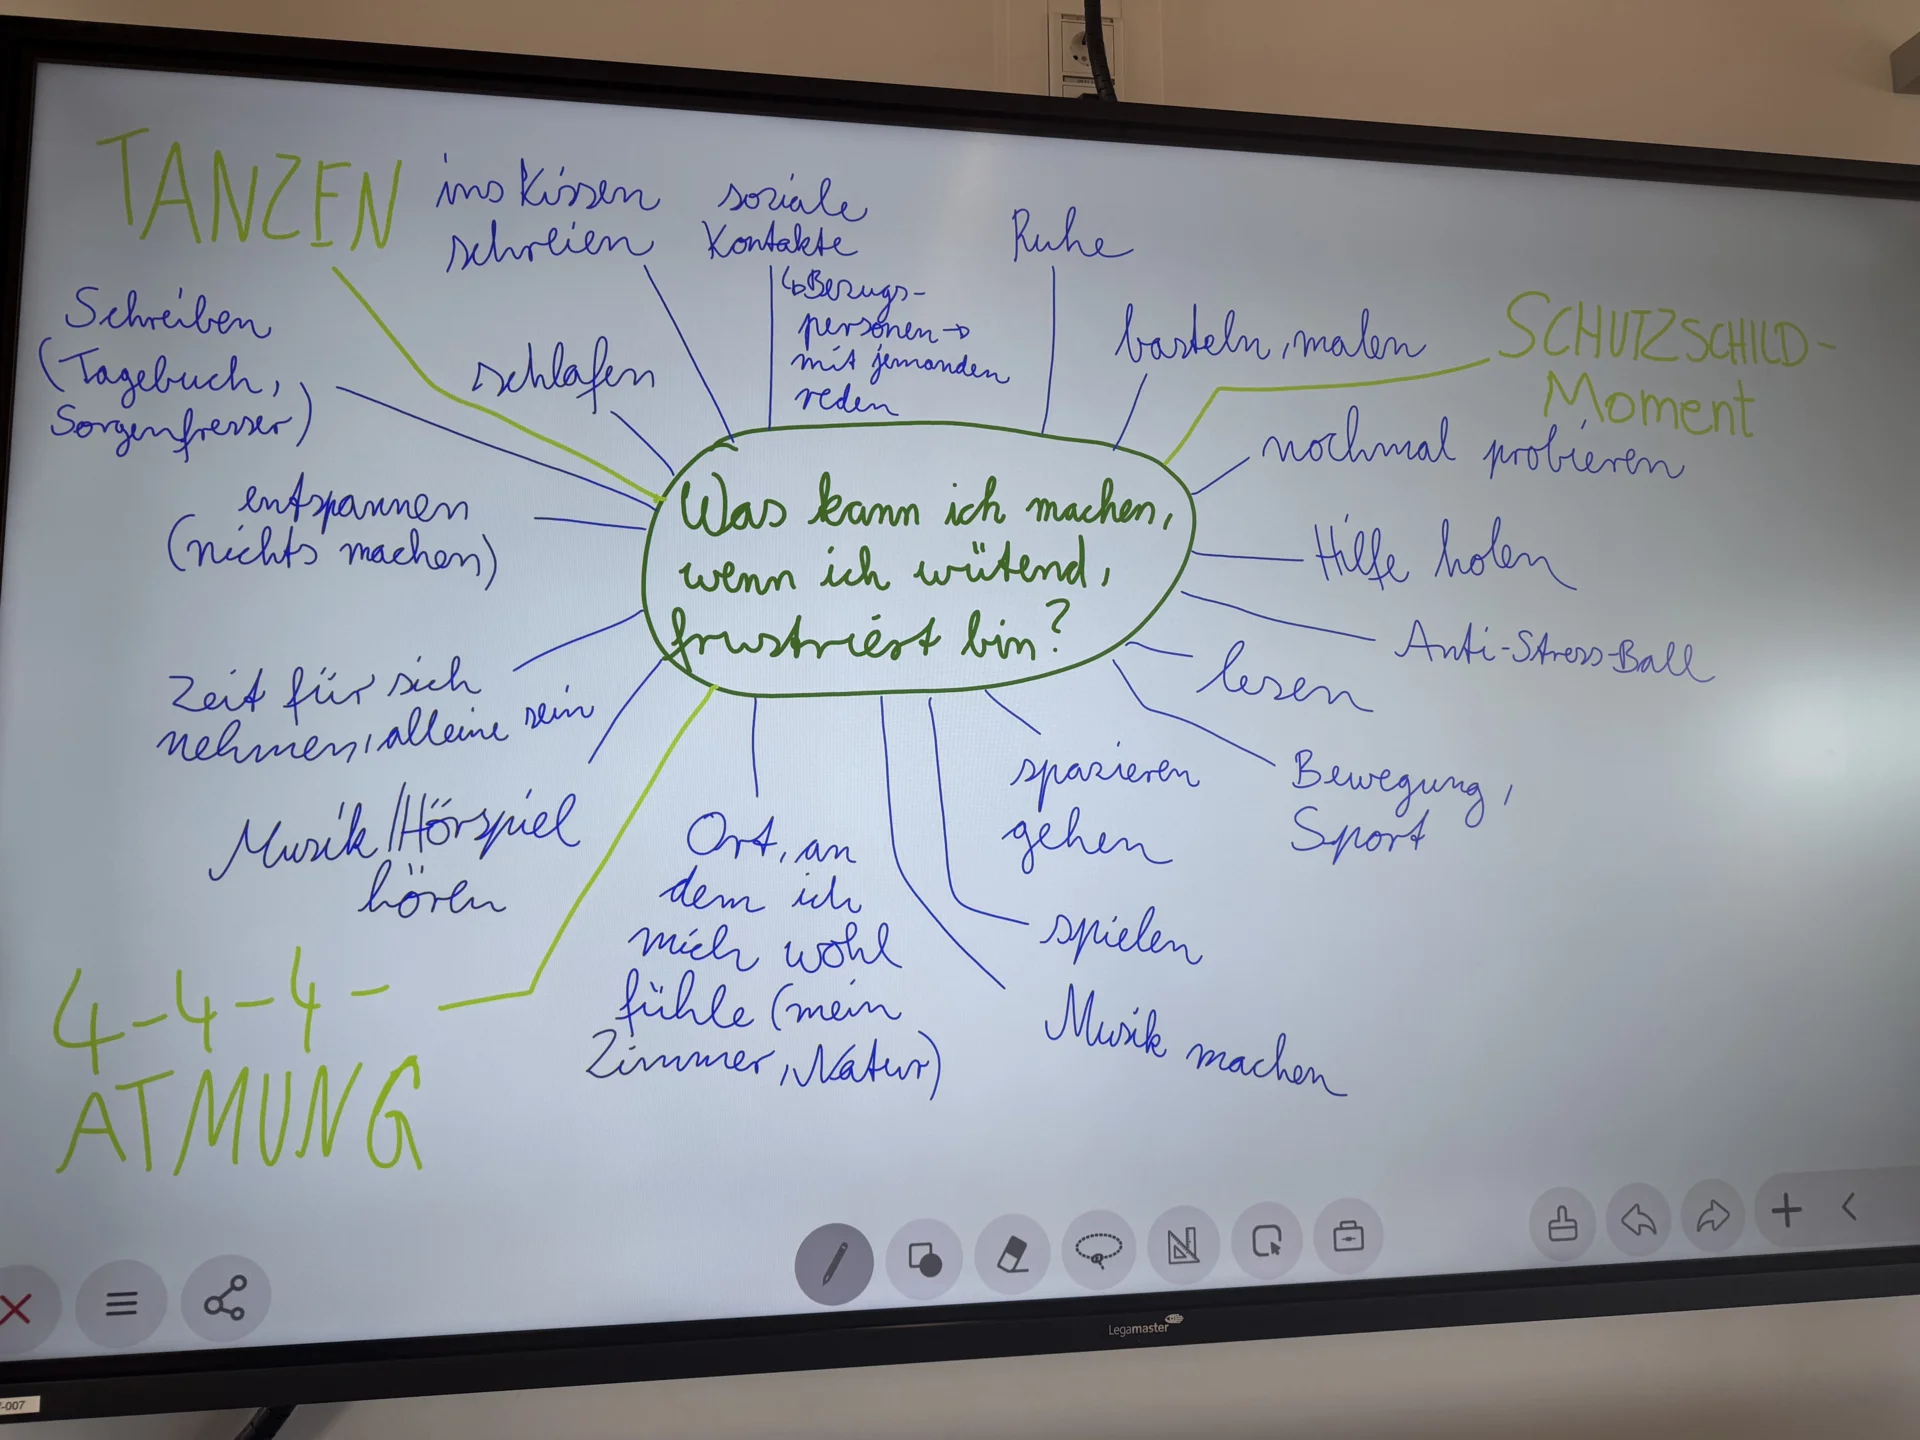 TANZEN
ins Kissen
schreien
soziale
Kontakte
↳ Bezugs-
personen →
mit jemanden
reden
Ruhe
basteln, malen
SCHUTZSCHILD-
Moment
Schreiben
(Tagebuch,
Sorgenfresser)
schlafen
nochmal probieren
entspannen
(nichts machen)
Was kann ich machen,
wenn ich wütend,
frustriert bin?
Hilfe holen
Anti-Stress-Ball
lesen
Zeit für sich
nehmen, alleine sein
Bewegung,
Sport
spazieren
gehen
Musik/Hörspiel
hören
Ort, an
dem ich
mich wohl
fühle (mein
Zimmer, Natur)
spielen
Musik machen
4-4-4-
ATMUNG
Legamaster
-007